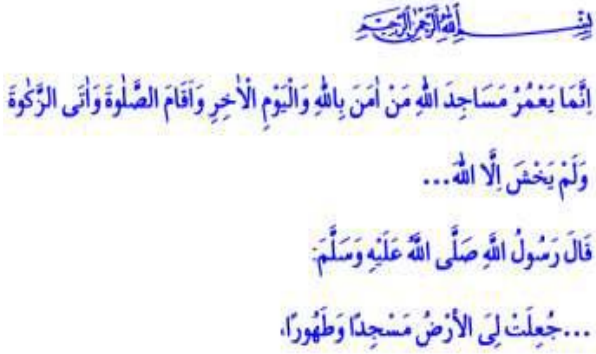 بِسْمِ اللّٰهِ الرَّحْمٰنِ الرَّحِيمِ
اِنَّمَا يَعْمُرُ مَسَاجِدَ اللّٰهِ مَنْ اٰمَنَ بِاللّٰهِ وَالْيَوْمِ الْاٰخِرِ وَاَقَامَ الصَّلٰوةَ وَاٰتَى الزَّكٰوةَ
وَلَمْ يَخْشَ اِلَّا اللّٰهَ...
قَالَ رَسُولُ اللَّهِ صَلَّى اللَّهُ عَلَيْهِ وَسَلَّمَ:
...جُعِلَتْ لِىَ الأَرْضُ مَسْجِدًا وَطَهُورًا،